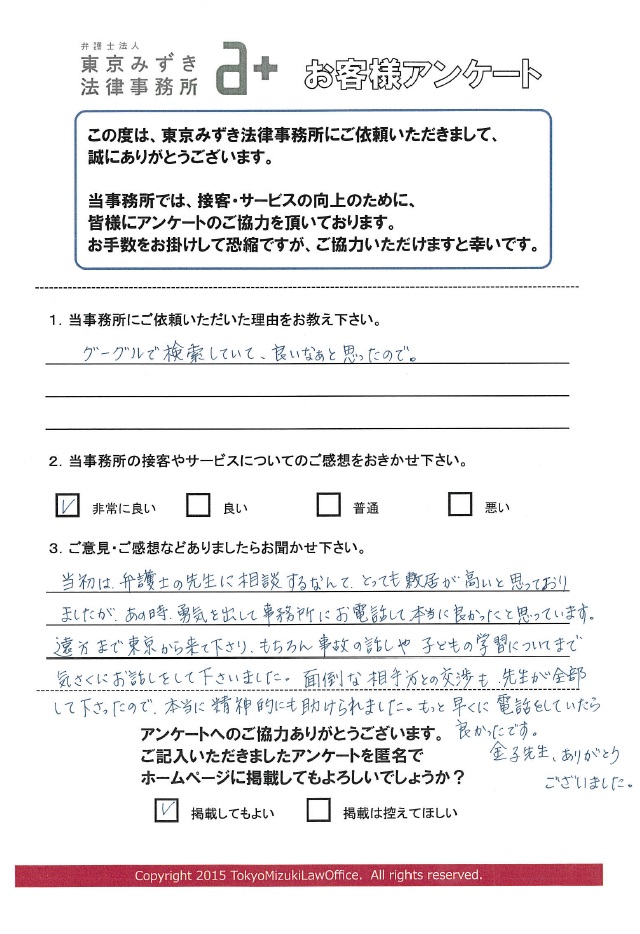 弁護士法人
東京みずき
法律事務所
a+
お客様アンケート
この度は、東京みずき法律事務所にご依頼いただきまして、
誠にありがとうございます。
当事務所では、接客・サービスの向上のために、
皆様にアンケートのご協力を頂いております。
お手数をお掛けして恐縮ですが、ご協力いただけますと幸いです。
1. 当事務所にご依頼いただいた理由をお教え下さい。
グーグルで検索していて、良いなぁと思ったので。
2. 当事務所の接客やサービスについてのご感想をおきかせ下さい。
非常に良い 良い 普通 悪い
3. ご意見・ご感想などありましたらお聞かせ下さい。
当初は、弁護士の先生に相談するなんて、とっても敷居が高いと思っており
ましたが、あの時、勇気を出して事務所にお電話して本当に良かったと思っています。
遠方まで東京から来て下さり、もちろん事故の話しや子どもの学習についてまで
気さくにお話しをして下さいました。面倒な相手方との交渉も、先生が全部
して下さったので、本当に精神的にも助けられました。もっと早くに電話をしていたら
良かったです。
金子先生、ありがとう
ございました。
アンケートへのご協力ありがとうございます。
ご記入いただきましたアンケートを匿名で
ホームページに掲載してもよろしいでしょうか？
掲載してもよい 掲載は控えてほしい
Copyright 2015 TokyoMizukiLawOffice. All rights reserved.